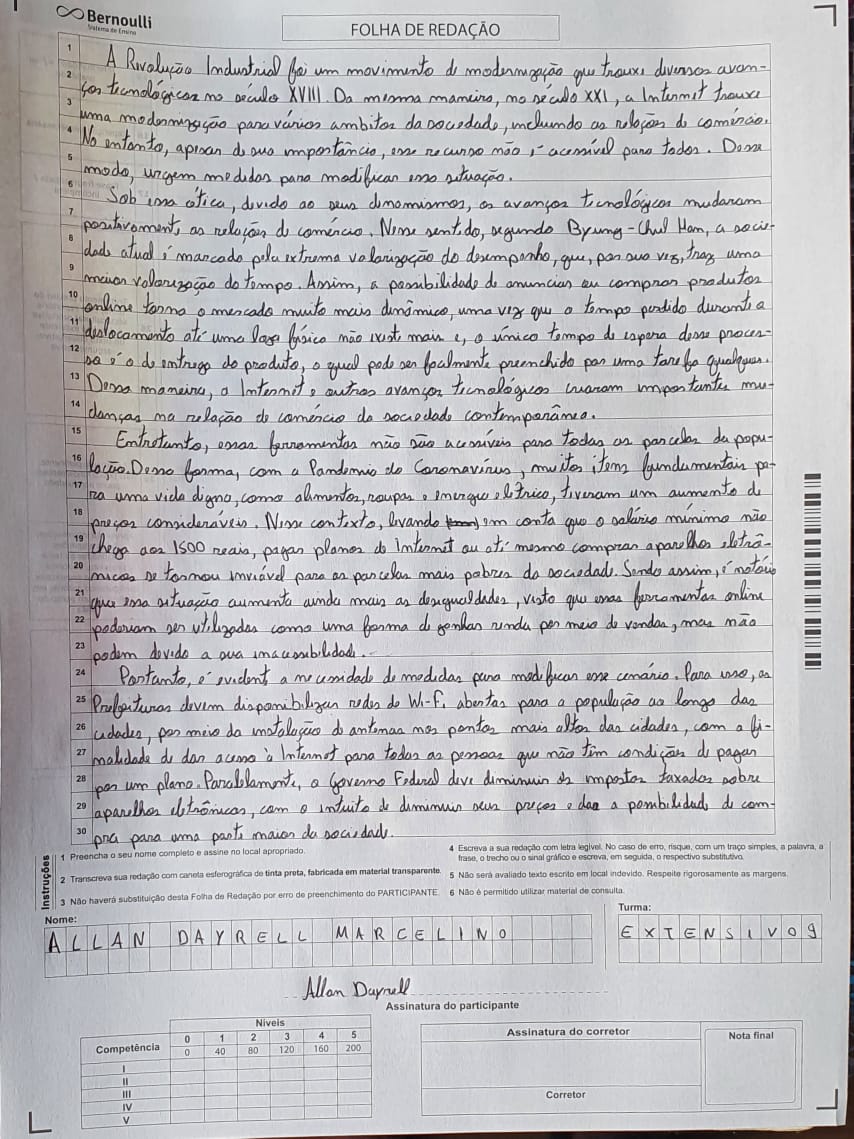 Bernoulli
Sistema de Ensino
FOLHA DE REDAÇÃO
1 A Revolução Industrial foi um movimento de modernização que trouxe diversos avan-
2 ços tecnológicos no século XVIII. Da mesma maneira, no século XXI, a Internet trouxe
3 uma modernização para vários ambitos da sociedade, incluindo as relações de comércio.
4 No entanto, apesar de sua importância, esse recurso não é acessível para todos. Desse
5 modo, urgem medidas para modificar essa situação.
6 Sob essa ótica, devido ao seus dinamismos, os avanços tecnológicos mudaram
7 positivamente as relações de comércio. Nesse sentido, segundo Byung-Chul Han, a socie-
8 dade atual é marcada pela extrema valorização do desempenho, que, por sua vez, traz uma
9 maior valorização do tempo. Assim, a possibilidade de anunciar ou comprar produtos
10 online torna o mercado muito mais dinâmico, uma vez que o tempo perdido durante a
11 deslocamento até uma loja física não existe mais e, o único tempo de espera desse proces-
12 so é o de entrega do produto, o qual pode ser facilmente preenchido por uma tarefa qualquer.
13 Dessa maneira, a Internet e outros avanços tecnológicos criaram importantes mu-
14 danças na relação de comércio da sociedade contemporânea.
15 Entretanto, essas ferramentas não são acessíveis para todas as parcelas da popu-
16 lação. Dessa forma, com a Pandemia do Coronavírus, muitos itens fundamentais pa-
17 ra uma vida digna, como alimentos, roupas e energia elétrica, tiveram um aumento de
18 preços consideráveis. Nesse contexto, levando em conta que o salário mínimo não
19 chega aos 1500 reais, pagar planos de Internet ou até mesmo comprar aparelhos eletrô-
20 nicos se tornou inviável para as parcelas mais pobres da sociedade. Sendo assim, é notório
21 que essa situação aumenta ainda mais as desigualdades, visto que essas ferramentas online
22 poderiam ser utilizadas como uma forma de ganhar renda por meio de vendas, mas não
23 podem devido a sua inacessibilidade.
24 Portanto, é evidente a necessidade de medidas para modificar esse cenário. Para isso, as
25 Prefeituras devem disponibilizar redes de Wi-Fi abertas para a população ao longo das
26 cidades, por meio da instalação de antenas nos pontos mais altos das cidades, com a fi-
27 nalidade de dar acesso à Internet para todas as pessoas que não têm condição de pagar
28 por um plano. Paralelamente, o Governo Federal deve diminuir os impostos taxados sobre
29 aparelhos eletrônicos, com o intuito de diminuir seus preços e dar a possibilidade de com-
30 pra para uma parte maior da sociedade.
Instruções
1 Preencha o seu nome completo e assine no local apropriado.
2 Transcreva sua redação com caneta esferográfica de tinta preta, fabricada em material transparente.
3 Não haverá substituição desta Folha de Redação por erro de preenchimento do PARTICIPANTE.
4 Escreva a sua redação com letra legível. No caso de erro, risque, com um traço simples, a palavra, a
frase, o trecho ou o sinal gráfico e escreva, em seguida, o respectivo substitutivo.
5 Não será avaliado texto escrito em local indevido. Respeite rigorosamente as margens.
6 Não é permitido utilizar material de consulta.
Nome:
ALLAN DAYRELL MARCELINO
Turma:
EXTENSIVO9
Allan Dayrell
Assinatura do participante
Níveis
Competência 0 1 2 3 4 5
0 40 80 120 160 200
I
II
III
IV
V
Assinatura do corretor
Corretor
Nota final